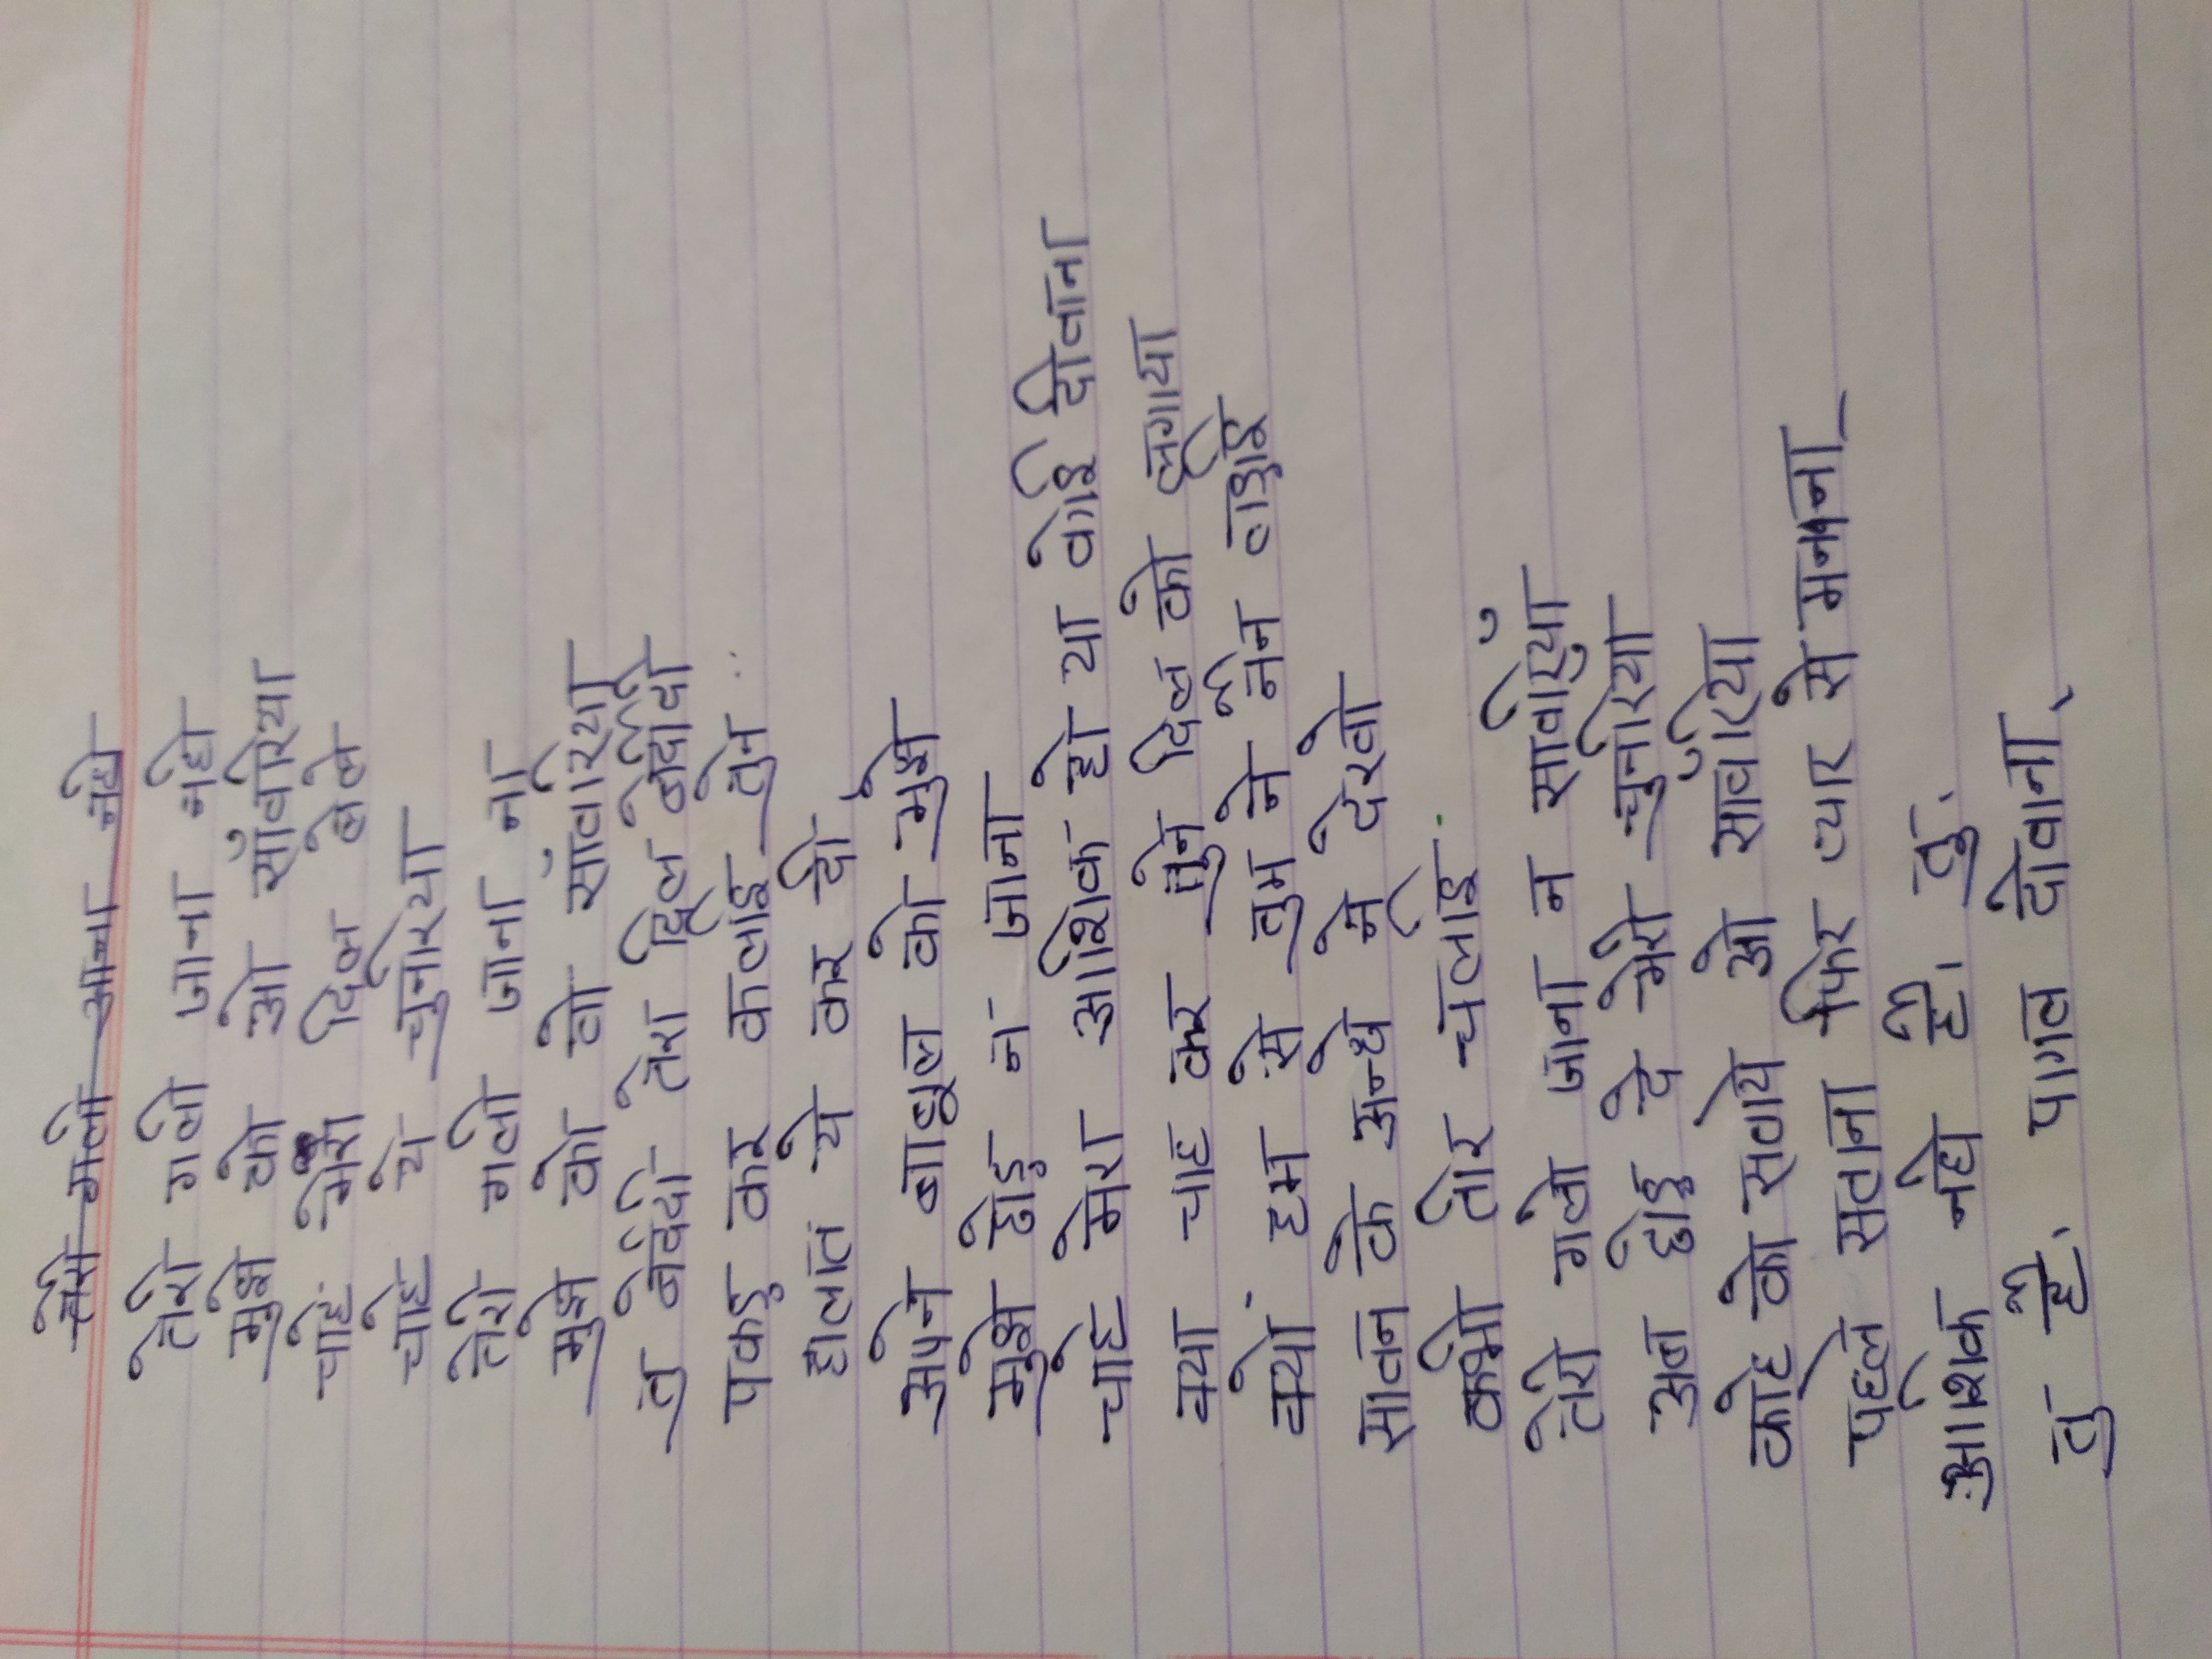 तेरी गली आना नही
तेरी गली जाना नही
मुझे को ओ साँवरिया
चाहे मेरा दिल लेले
चाहे ये चुनरिया
तेरी गली जाना ना
मुझे को वो साँवरिया
तु बेदर्दी तेरा दिल बेदर्दी
पकड़ कर कलाइ तुने
हालत ये कर दी
अपने बाहुल को मुझे
मुझे छोड़ न जाना
चाहे मेरा आशिक हो या कोई दीवाना
क्या चाह कर तुने दिल को लगाया
क्यों हम से तुम ने नैन
सावन के अन्धे ने देखो
कभी तीर चलाइ
तेरी गली जाना न सावरियाँ
अब छोड़ दे मेरी चुनरिया
काहे को सताये ओ सावरिया
पहले सताना फिर प्यार से मनाना
आशिक नही है। तु.
तु है. पागल दीवाना